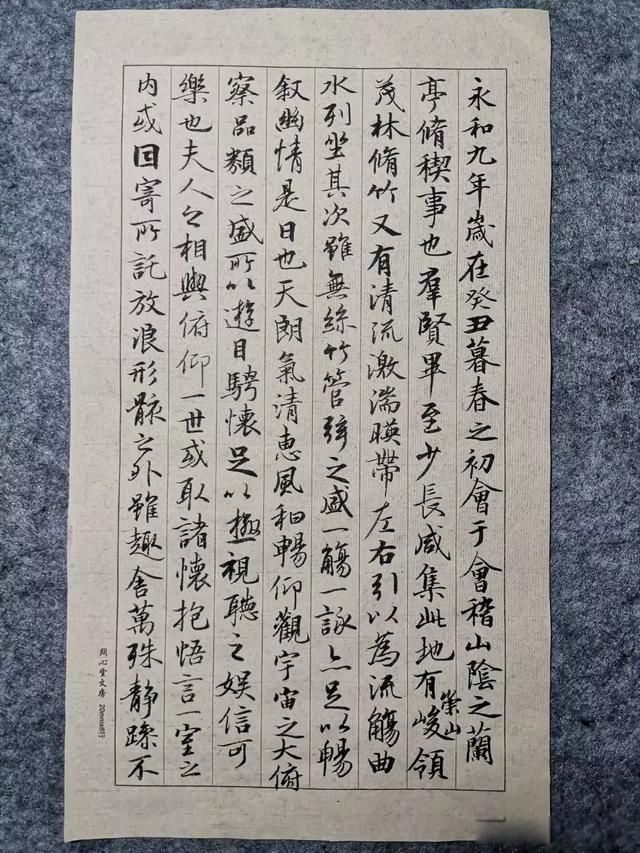 永和九年歲在癸丑暮春之初會于會稽山陰之蘭
亭脩稧事也羣賢畢至少長咸集此地有崇山峻領
茂林脩竹又有清流激湍暎帶左右引以為流觴曲
水列坐其次雖無絲竹管弦之盛一觴一詠亦足以暢
叙幽情是日也天朗氣清恵風和暢仰觀宇宙之大俯
察品類之盛所以遊目騁懷足以極視聽之娛信可
樂也夫人之相與俯仰一世或取諸懷抱悟言一室之
内或因寄所託放浪形骸之外雖趣舍萬殊静躁不
問心堂文房 20mmx8行